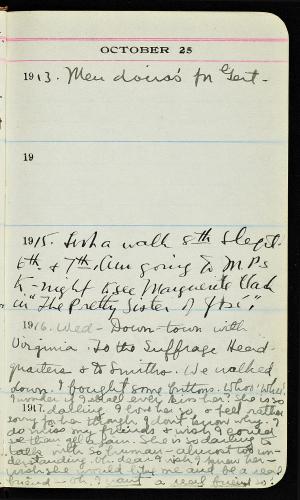 OCTOBER 25
1913. Mendoiros's for Gert-
19
1915. a walk 8th
6th. & 7th. Am going to M.P.s
to-night to see Marguerite Clark
in "The Pretty Sister of José,"
1916. Wed- Down-town with
Virginia. To the Suffrage Head-
quarters & to Smiths. We walked
down. I bought some buttons. Whoo! Whee!
I wonder if I shall ever kiss her? She is so
1917. darling I love her so, & feel rather
sorry for her though I don't know why. I
do miss my friends & wish I could
see them all again. She is so darling to
talk with so human - almost too un-
derstanding. Oh dear I wish I knew her -
wish she would like me and be a real
friend - oh I want a real friend so!